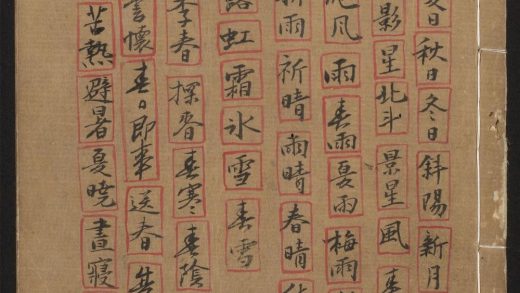 日 秋日 冬日 斜陽 新月
影 星 北斗 景星 風 春
風 雨 春雨 夏雨 梅雨
雨 祈晴 雨晴 春晴
虹 霜 氷 雪 春雪
季春 探春 春寒 春陰
書懷 春日即事 送春
苦熱 避暑 夏曉 晝寢